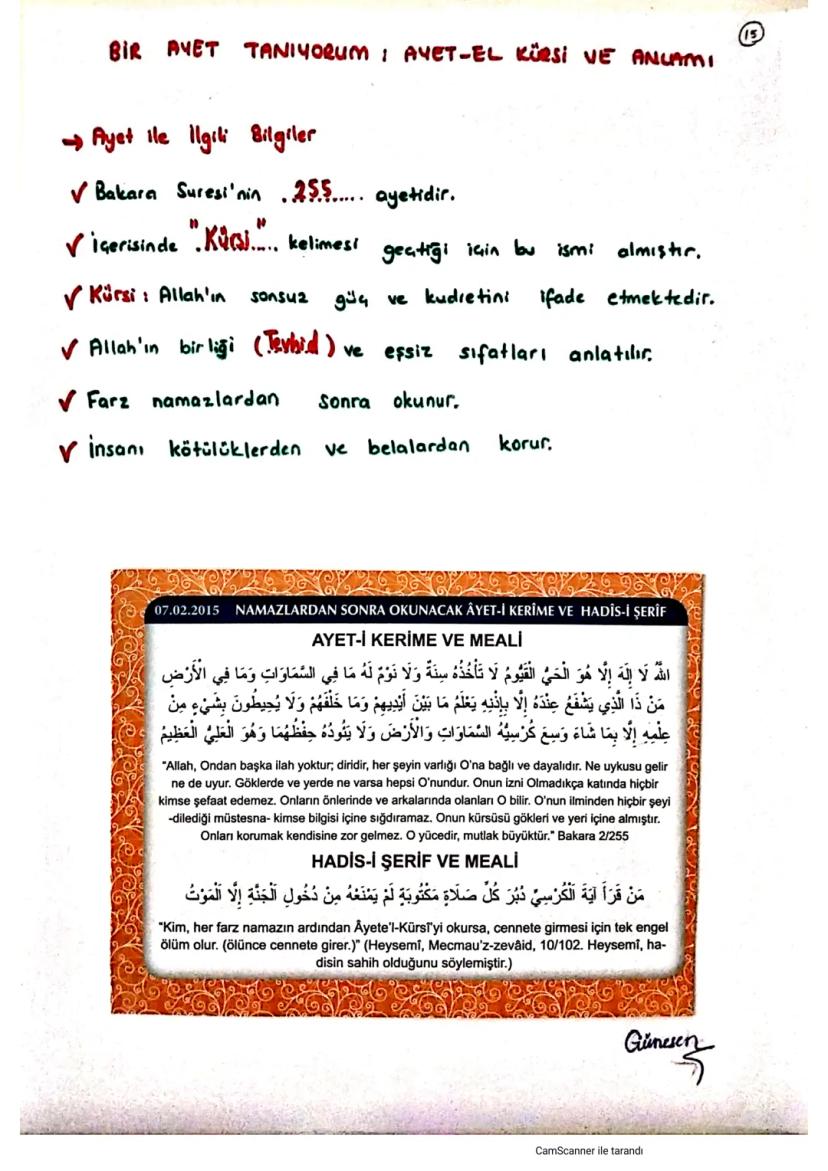 15
BİR AYET TANIYORUM : AYET-EL KÜRSİ VE ANLAMI
→ Ayet ile İlgili Bilgiler
✓ Bakara Suresi'nin .255..... ayetidir.
✓ İçerisinde ".Kürsi.".. kelimesi geçtiği için bu ismi almıştır.
✓ Kürsi : Allah'ın sonsuz güç ve kudretini ifade etmektedir.
✓ Allah'ın birliği (Tevhid) ve eşsiz sıfatları anlatılır.
✓ Farz namazlardan sonra okunur.
✓ İnsanı kötülüklerden ve belalardan korur.
07.02.2015 NAMAZLARDAN SONRA OKUNACAK ÂYET-İ KERİME VE HADİS-İ ŞERİF
AYET-İ KERİME VE MEALİ
اللهُ لَا إِلَهَ إِلَّا هُوَ الْحَيُّ الْقَيُّومُ لَا تَأْخُذُهُ سِنَةٌ وَلَا نَوْمٌ لَهُ مَا فِي السَّمَاوَاتِ وَمَا فِي الْأَرْضِ
مَنْ ذَا الَّذِي يَشْفَعُ عِنْدَهُ إِلَّا بِإِذْنِهِ يَعْلَمُ مَا بَيْنَ أَيْدِيهِمْ وَمَا خَلْفَهُمْ وَلَا يُحِيطُونَ بِشَيْءٍ مِنْ
عِلْمِهِ إِلَّا بِمَا شَاءَ وَسِعَ كُرْسِيُّهُ السَّمَاوَاتِ وَالْأَرْضَ وَلَا يَئُودُهُ حِفْظُهُمَا وَهُوَ الْعَلِيُّ الْعَظِيمُ
"Allah, Ondan başka ilah yoktur; diridir, her şeyin varlığı O'na bağlı ve dayalıdır. Ne uykusu gelir
ne de uyur. Göklerde ve yerde ne varsa hepsi O'nundur. Onun izni Olmadıkça katında hiçbir
kimse şefaat edemez. Onların önlerinde ve arkalarında olanları O bilir. O'nun ilminden hiçbir şeyi
-dilediği müstesna- kimse bilgisi içine sığdıramaz. Onun kürsüsü gökleri ve yeri içine almıştır.
Onları korumak kendisine zor gelmez. O yücedir, mutlak büyüktür." Bakara 2/255
HADİS-İ ŞERİF VE MEALİ
مَنْ قَرَأَ آيَةَ الْكُرْسِيِّ دُبُرَ كُلِّ صَلَاةٍ مَكْتُوبَةٍ لَمْ يَمْنَعْهُ مِنْ دُخُولِ الْجَنَّةِ إِلَّا الْمَوْتُ
"Kim, her farz namazın ardından Âyete'l-Kürsî'yi okursa, cennete girmesi için tek engel
ölüm olur. (ölünce cennete girer.)" (Heysemî, Mecmau'z-zevâid, 10/102. Heysemî, ha-
disin sahih olduğunu söylemiştir.)
Günesen
CamScanner ile tarandı